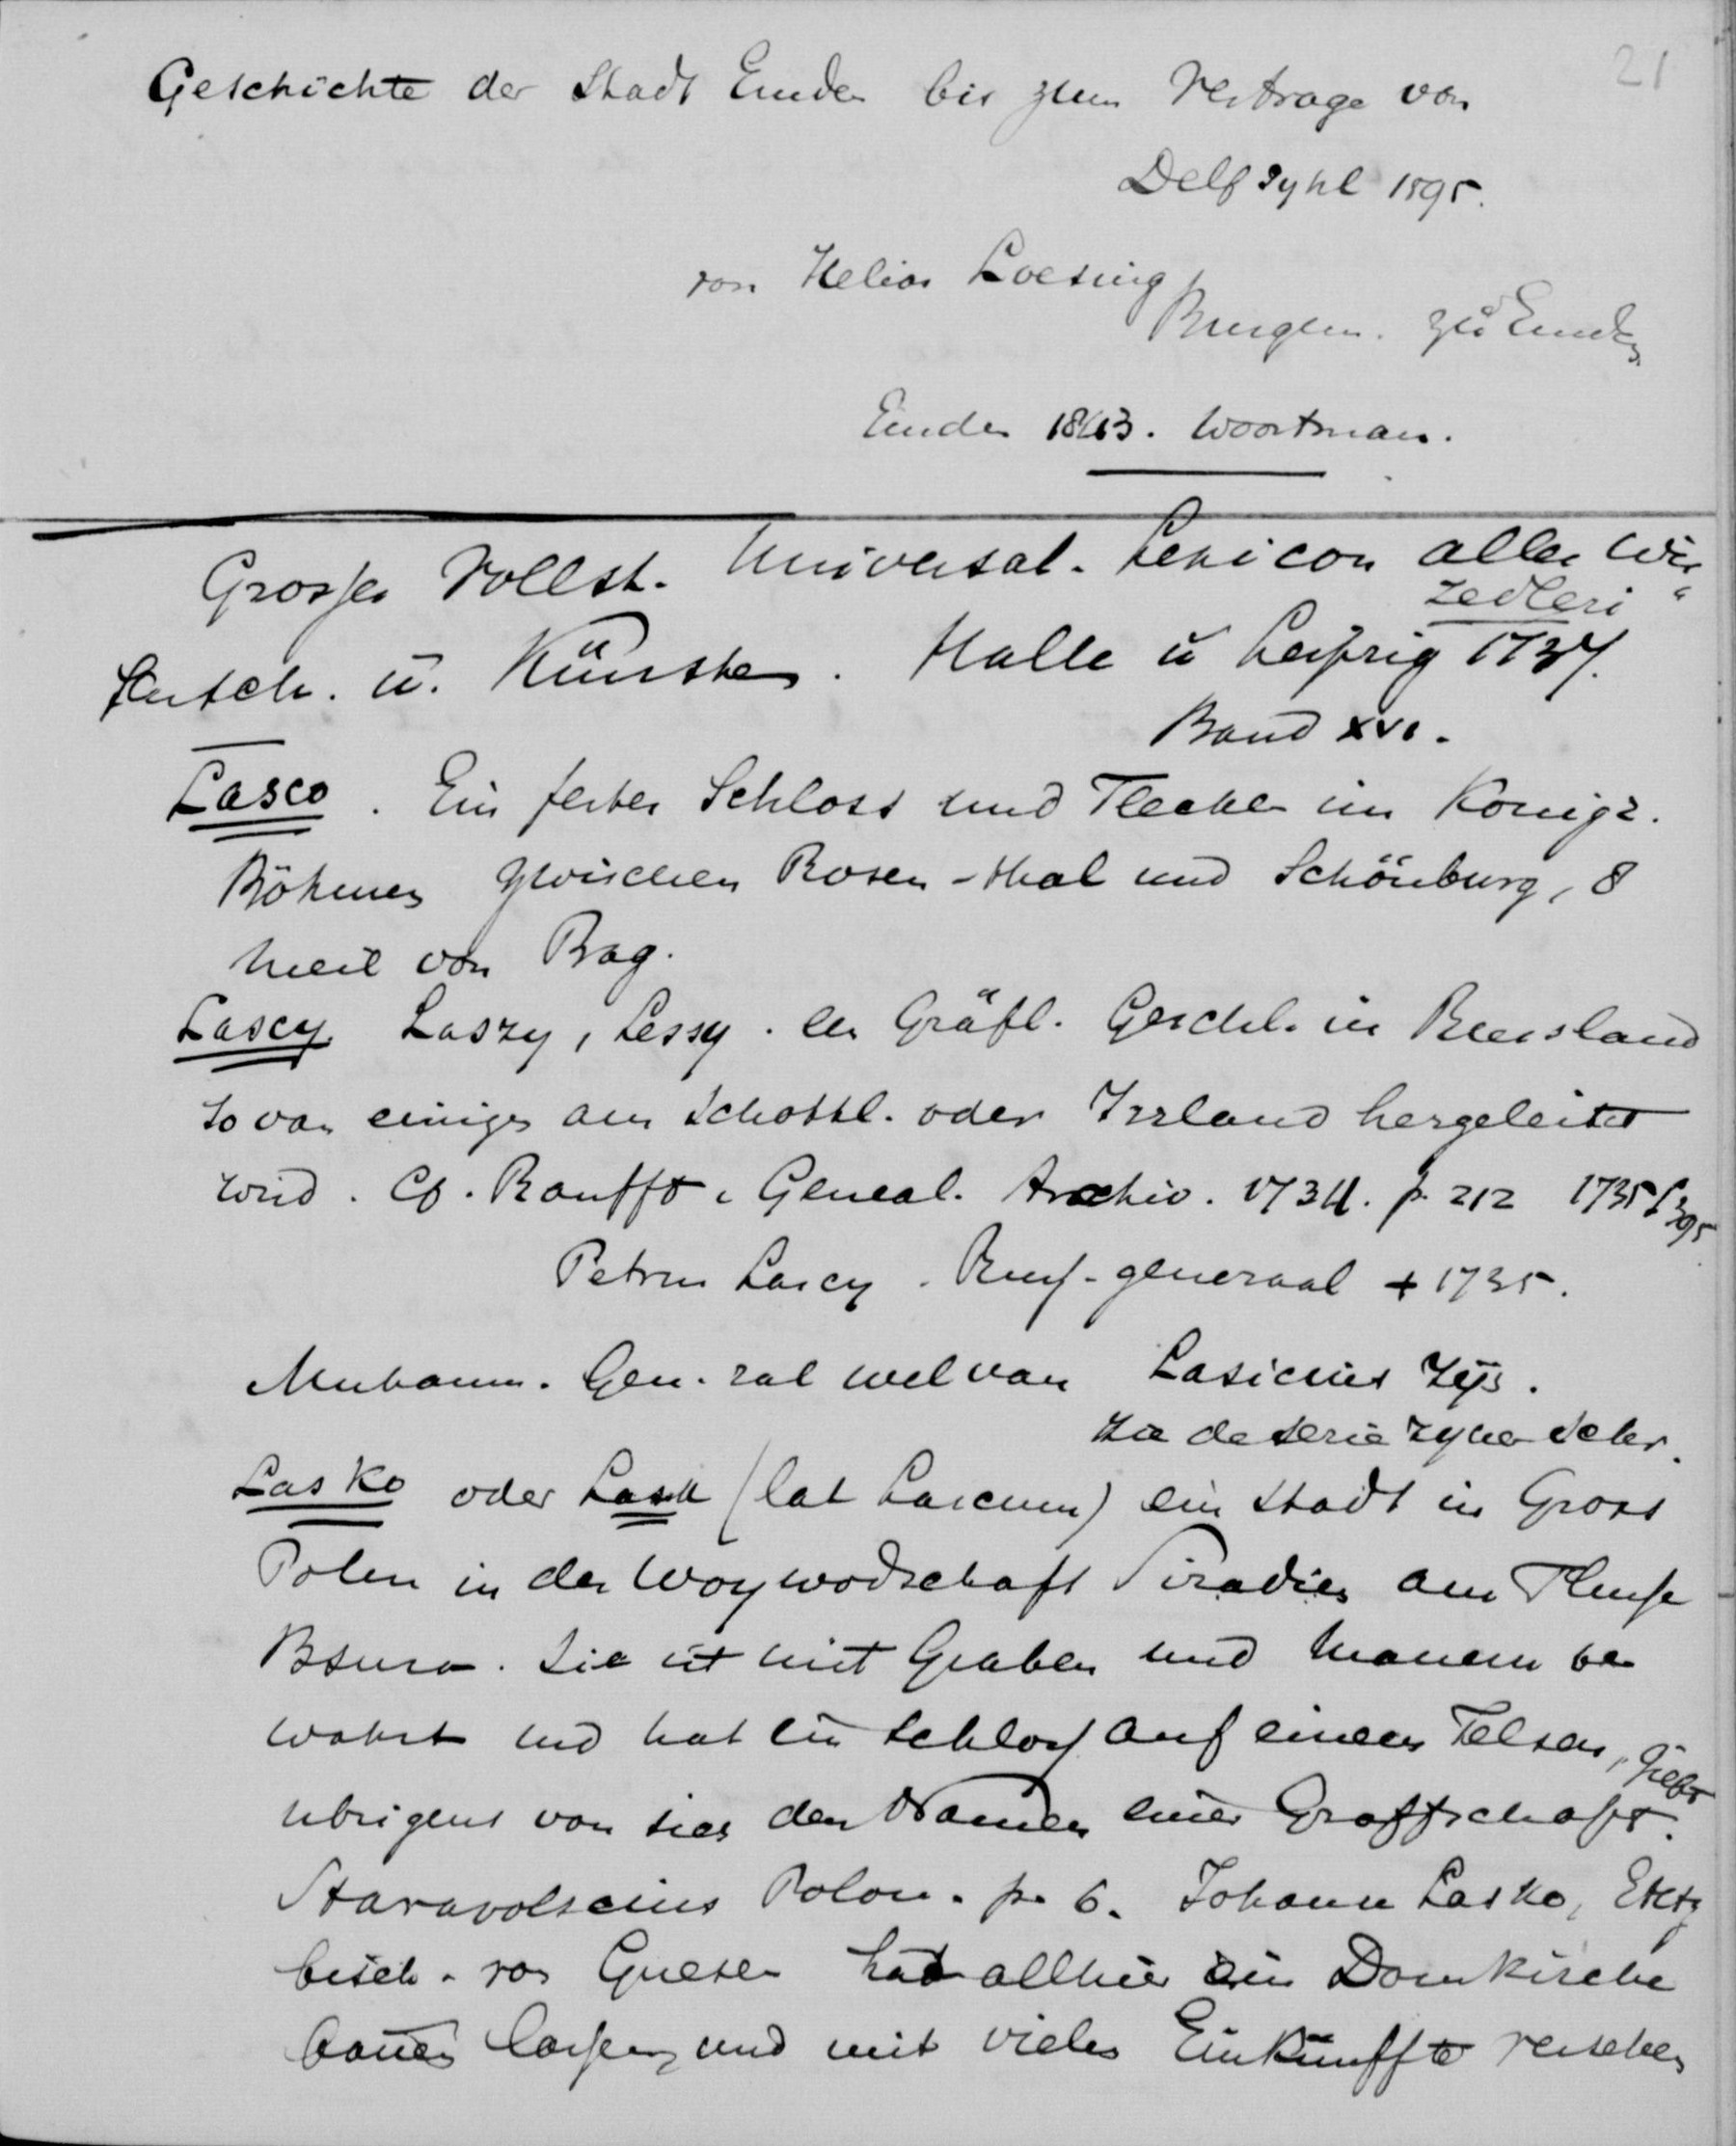 21
Geschichte der Stadt Emden bis zum Vertrage von
Delfzyhl 1595.
von Helias Loesing
Burgem. zu Emden
Emden 1843. Woortman.
Grosses Vollst. Universal-Lexicon aller Wis
Zedleri
sensch. u. Künsten. Halle u Leipzig 1737.
Band XVI.
Lasco. Ein festes Schloss und Flecken im Königr.
Böhmen zwischen Rosen-thal und Schönburg, 8
Meil von Prag.
Lascy. Laszy, Lessy. ein Gräfl. Geschl. in Reussland
so von einigen aus Schottl. oder Irrland hergeleitet
wird. Cf. Ranfft. Geneal. Archiv. 1734. p. 212 1735 p 395
Petrus Lascy. Russ-generaal + 1735.
Gen. zal wel van Lasicius zijn.
Zie de serie zyner schr.
Lasko oder Lask (lat Lascum) ein Stadt in Gross
Polen in der Woywodschaft Siradien am Flusse
Bsura. Sie ist mit Graben und Mauern be
wahrt und hat ein Schloss auf einem Felsen, giebt
ubrigens von sich den Namen einer Graffschaft.
Staravolscius Polon. p. 6. Johann Lasko, Ertz
bisch. von Gnesen hat allhier ein Domkirche
bauen lassen, und mit vielen Einkünffte versehen